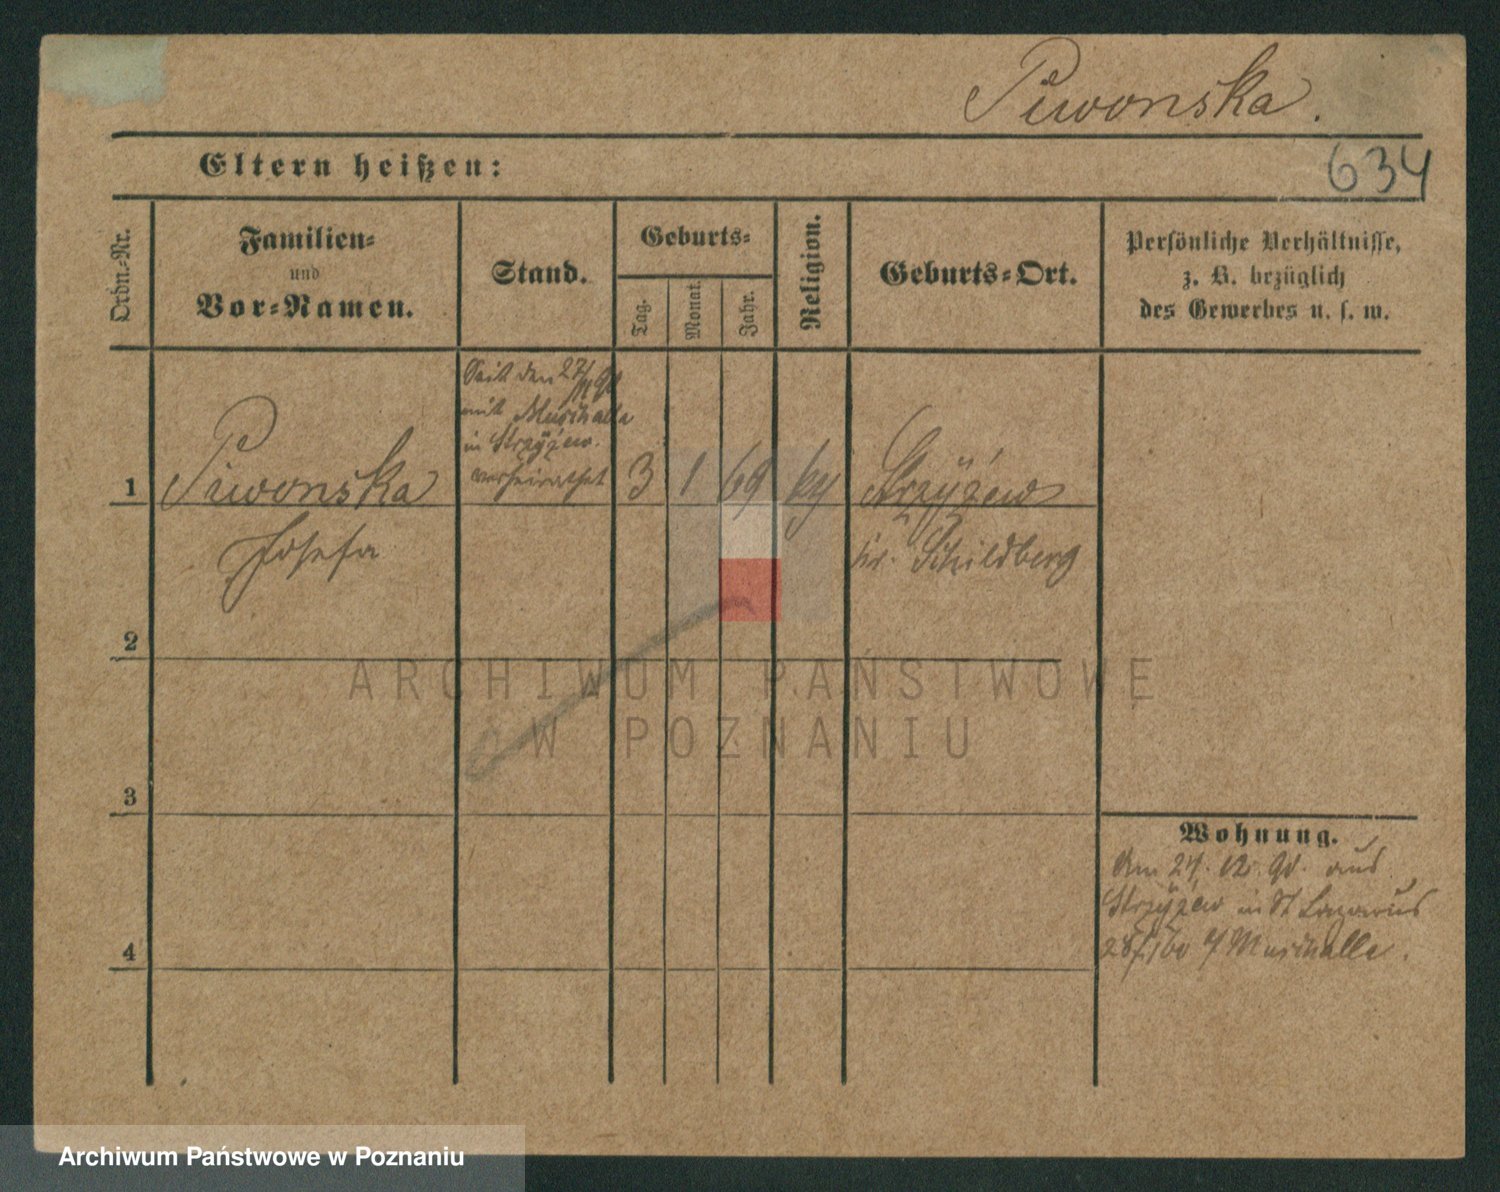 Piwonska.
Eltern heißen:
634
Ordn.-Nr.
Familien-
und
Vor-Namen.
Stand.
Geburts-
Tag.
Monat.
Jahr.
Religion.
Geburts-Ort.
Persönliche Verhältnisse,
z. B. bezüglich
des Gewerbes u. s. w.
Seit den 27/
mit
in Strzyżew.
verheirathet
1
Piwonska
3 1 69
Strzyżew
Josefa
Kr. Schildberg
2
3
4
Wohnung.
Am 24. 12. 90. aus
Strzyżew in St Lazarus
ARCHIWUM PAŃSTWOWE
W POZNANIU
Archiwum Państwowe w Poznaniu